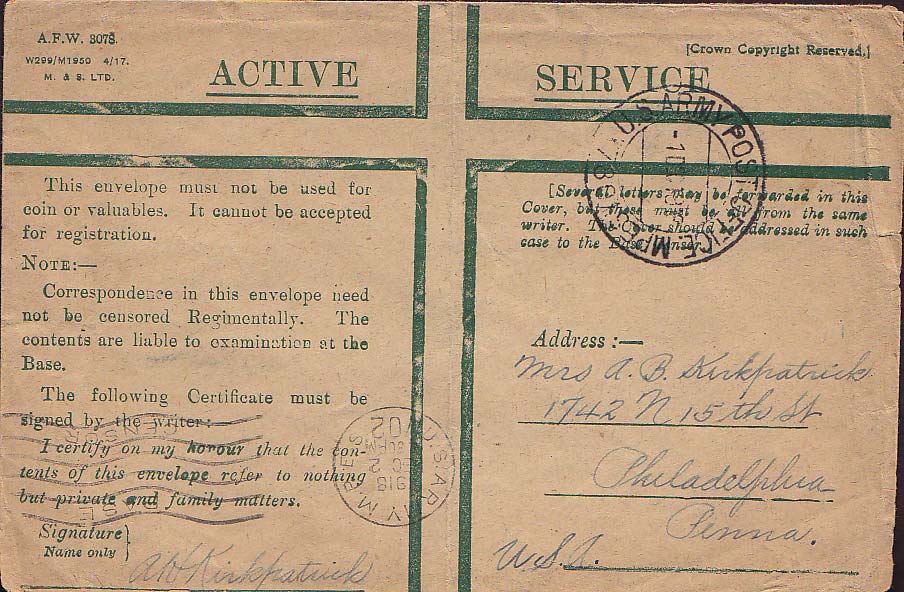 A.F.W. 3078.
W299/M1950 4/17.
M. & S. LTD.
[Crown Copyright Reserved.]
ACTIVE SERVICE
This envelope must not be used for
coin or valuables. It cannot be accepted
for registration.
NOTE:—
Correspondence in this envelope need
not be censored Regimentally. The
contents are liable to examination at the
Base.
The following Certificate must be
signed by the writer:
I certify on my honour that the con-
tents of this envelope refer to nothing
but private and family matters.
Signature
Name only
A W Kirkpatrick
[Several letters may be forwarded in this
Cover, but these must be all from the same
writer. The Cover should be addressed in such
case to the Base Censor.
Address :—
Mrs A. B. Kirkpatrick
1742 N 15th St
Philadelphia
Penna.
U.S.A.
U.S. ARMY POST OFFICE M.P.E.S.
U.S. ARMY M.P.E.S.